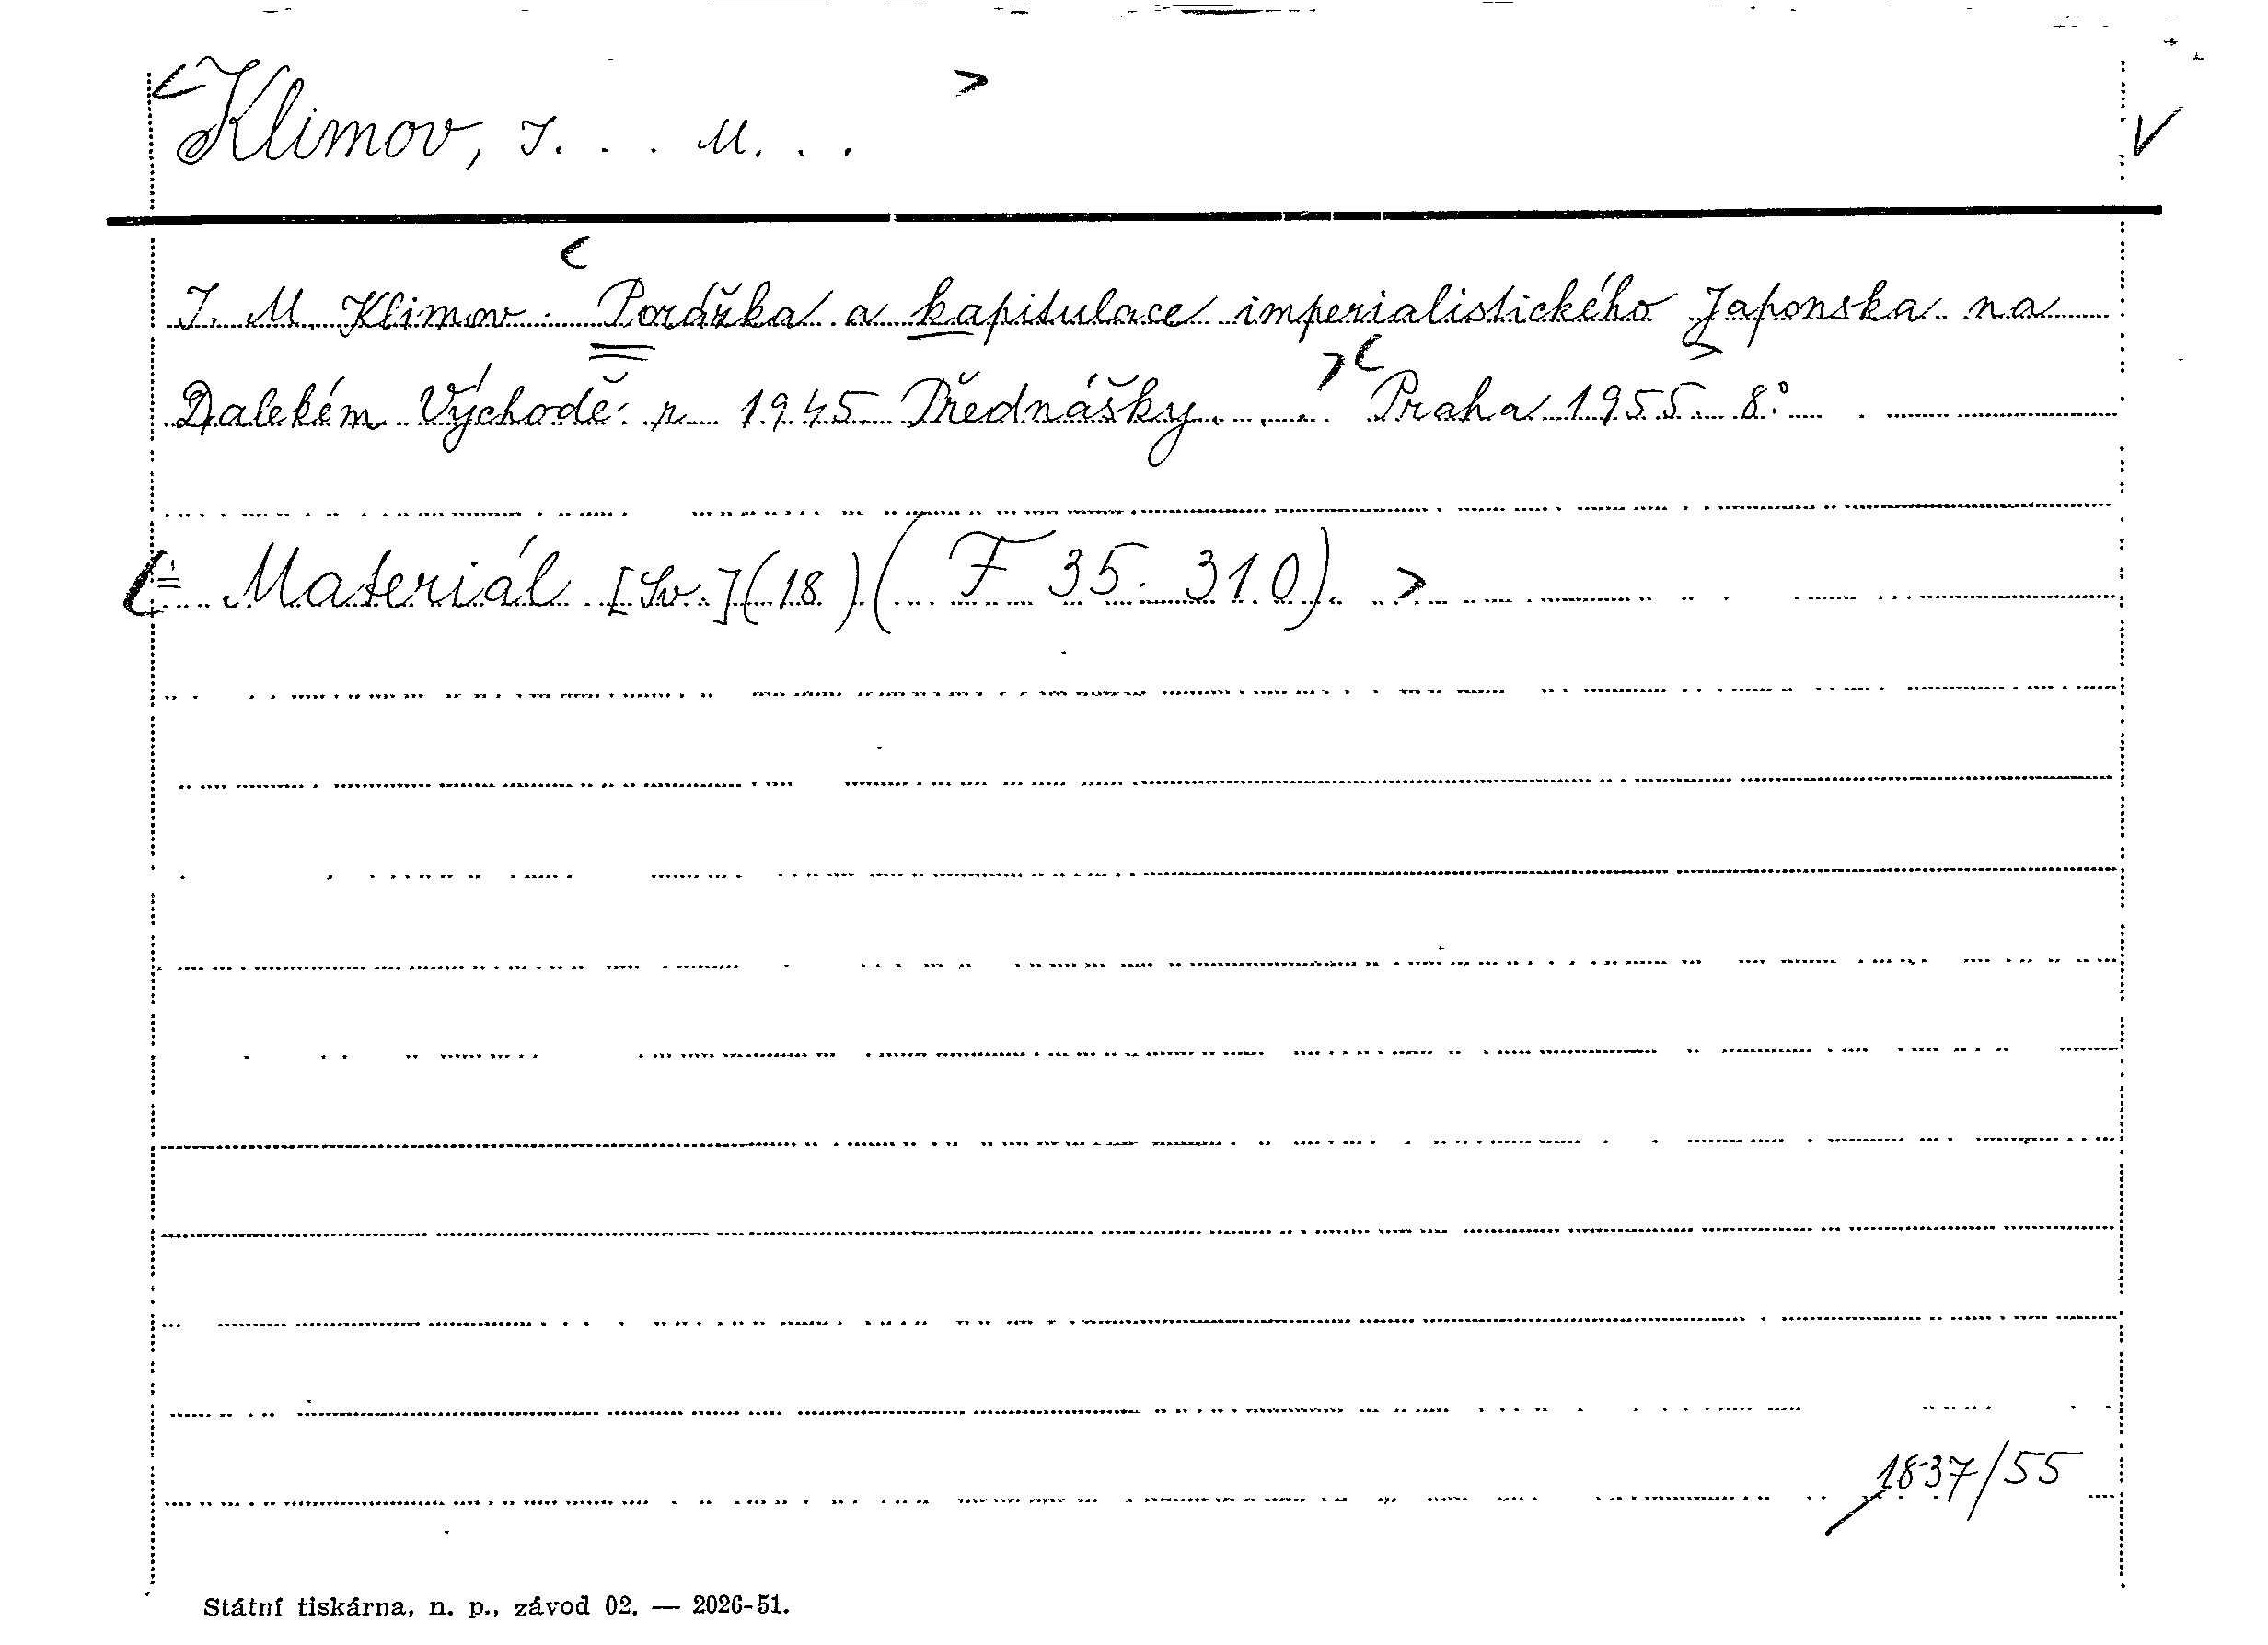 <Klimov, I. . . M. . . > V
I. M. Klimov. <Porážka a kapitulace imperialistického Japonska na
Dalékém Východě r. 1945. Přednášky. . . >< Praha 1955. 8°.
(= Materiál [Sv.] (18) (F 35.310). >
1837/55
Státní tiskárna, n. p., závod 02. — 2026-51.